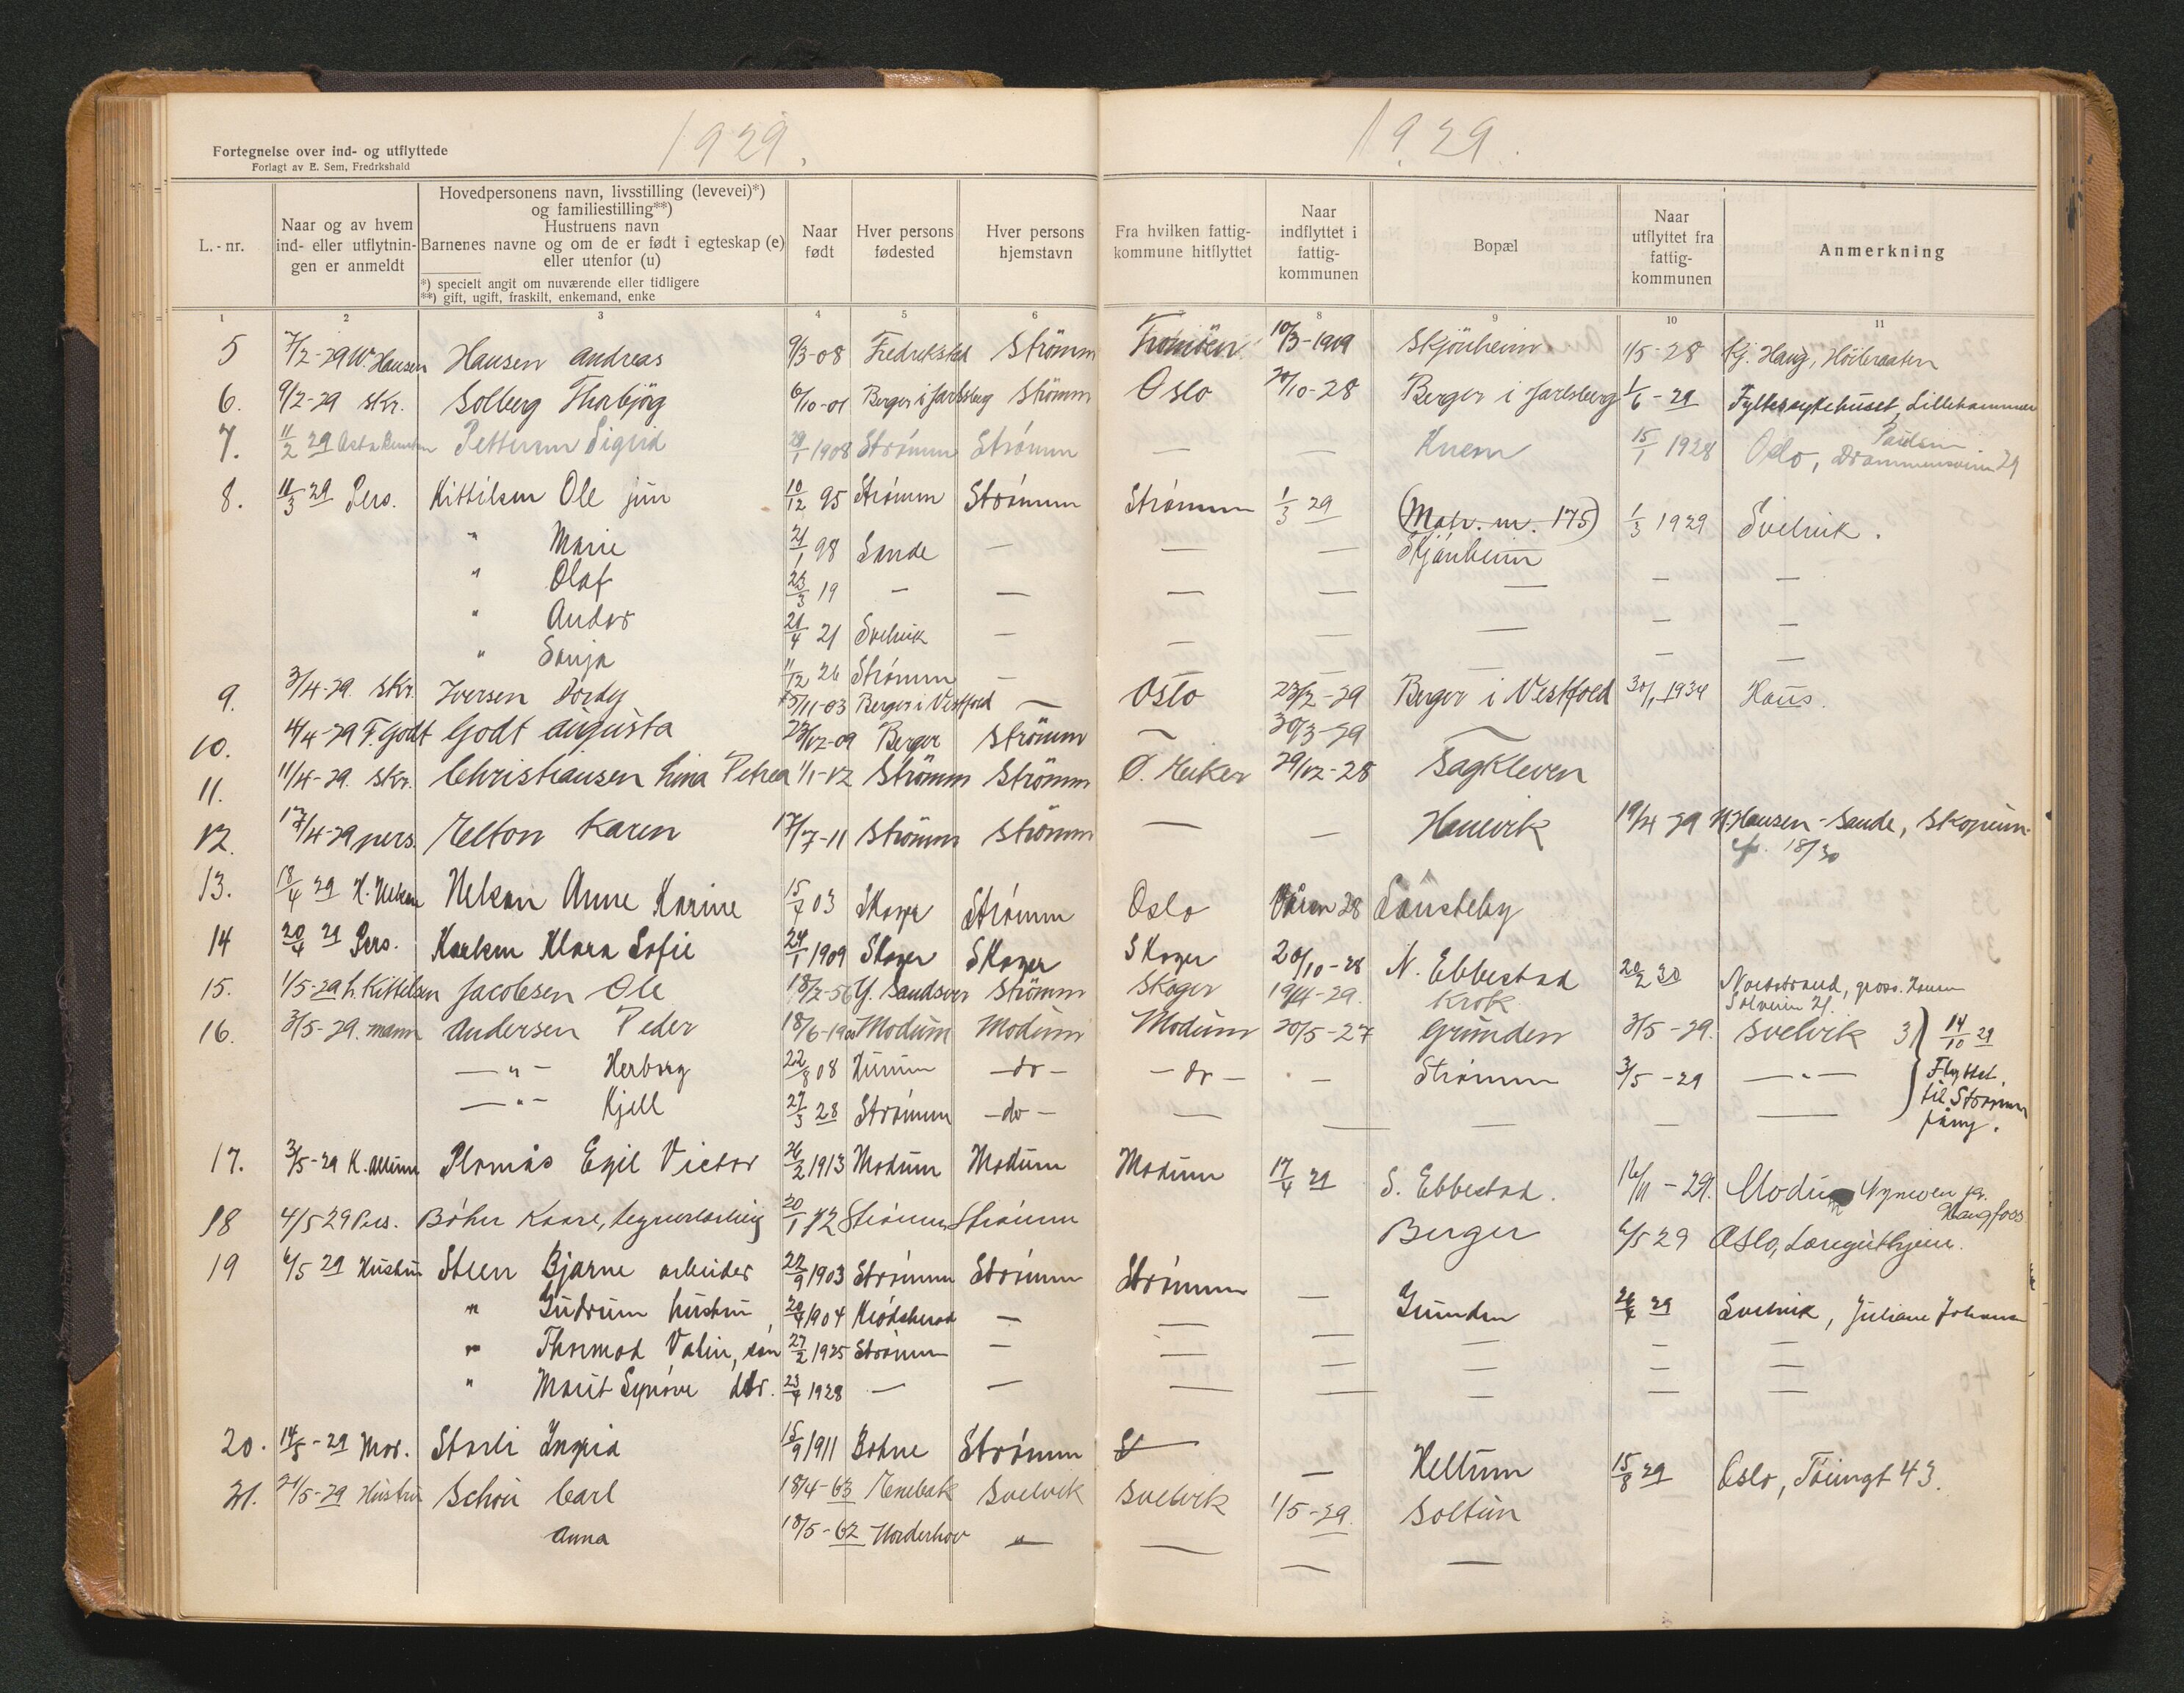 1929.
1929.
Fortegnelse over ind- og utflyttede
Forlagt av E. Sem, Fredrkshald
L.-nr.
Naar og av hvem ind- eller utflytnin- gen er anmeldt
Hovedpersonens navn, livsstilling (levevei)*)
og familiestilling**)
Hustruens navn
Barnenes navne og om de er født i egteskap (e)
eller utenfor (u)
*) specielt angit om nuværende eller tidligere
**) gift, ugift, fraskilt, enkemand, enke
Naar født
Hver persons fødested
Hver persons hjemstavn
Fra hvilken fattig- kommune hitflyttet
Naar indflyttet i fattig- kommunen
Bopæl
Naar utflyttet fra fattig- kommunen
Anmerkning
1 2 3 4 5 6 8 9 10 11
5 7/2-29 W. Hansen Hansen Andreas 9/3-08 Fredrikstad Strömm 10/3-1919 Skjönheim 1/5-28 Kj. Haug, Höibraaten
6. 9/2-29 skr. Solberg Thorbjög 6/10-01 Berger i Jarlsberg Strömm Oslo 20/10-28 Berger i Jarlsberg 1/6-29 Fylkessykehuset, Lillehammer
7. 11/2 29 Pettersen Sigrid 29/1 1908 Strømm Strømm — — Knem 15/1 1928 Oslo, Drammensveien 29
8. 11/3 29 Pers. Kittilsen Ole jun 10/12 95 Strømm Strømm Strømm 1/3 29 (Matr. nr. 175) 1/3 1929 Svelvik.
" Marie 21/1 98 Sande — — — Skjønheim
" Olaf 23/3 19 — — — — — — —
" Andor 21/4 21 Svelvik — — — — — —
" Sonja 11/12 26 Strømm — — — — — —
9. 3/4-29. skr. Iversen Dordy 15/11-03 Berger i Vestfold — Oslo 23/2-29 Berger i Vestfold 30/1 1934 Hous.
10. 4/4-29 F. Godt Godt Augusta 23/12-09 Berger Strömm — 30/3-29 —
11. 11/4-29. skr. Christiansen Lina Petrea 1/1-12 Strömm Strömm Ö. Eiker 29/12-28 Sagkleven
12. 17/4-29 pers. Elton Karen 17/7-11 Strömm Strömm — — Hanevik 19/4 29 H. Hansen-Sande, Skopum
18/30
13. 18/4 29 H. Nelson Nelson Anne Karine 15/7 03 Skoger Strømm Oslo Våren 28 Sønsteby
14 20/4 29 Pers. Karlsen Klara Sofie 24/1 1909 Skoger Skoger Skoger 20/10-28 N. Ebbestad 20/2 30 Nordstrand, gross. Hansen
Solveien 21.
15. 1/5-29 h. Kittilsen Jacobsen Ole 18/2-56 Y. Sandsver Strömm Skoger 19/4-29. Krok
16. 3/5-29. mann Andersen Peder 18/6-1900 Modum Modum Modum 20/5-27 Grunden 3/5-29. Svelvik 3) 14/10 29
—"— Herborg 22/8 08 Hurum —do— —do— — Strømm 3/5-29 —"— Flyttet
—"— Kjell 27/3 28 Strømm —do— — — — — — til Strømm
påny.
17. 3/5-29 Plomås Egil Victor 26/2 1913 Modum Modum Modum 17/4 29 S. Ebbestad. 16/11-29. Modum
Haugfoss
18 4/5 29 Pers. Böhn Kaare, 20/1 12 Strömm Strömm Berger 6/5 29 Oslo,
19 6/5 29 Hustru Steen Bjarne arbeider 22/9 1903 Strømm Strømm Strømm — Grunden 26/4 29 Svelvik, Juliane Johansen
" Gudrun hustru, 20/4 1904 Krødsherad — — — — — —
" Thormod Valin, søn 27/2 1925 Strømm — — — — — —
" Marit Synøve dtr. 23/4 1928 — — — — — — —
20. 14/5-29 Mor. Storli Ingrid 15/9 1911 Botne Strømm — — Hellum 15/8 29 Oslo, Töiengt 43.
21. 21/5-29 Hustru Schou Carl 18/4-63 Enebak Svelvik Svelvik 1/5-29. Soltun
Anna 18/5-62 Norderhov " — — —